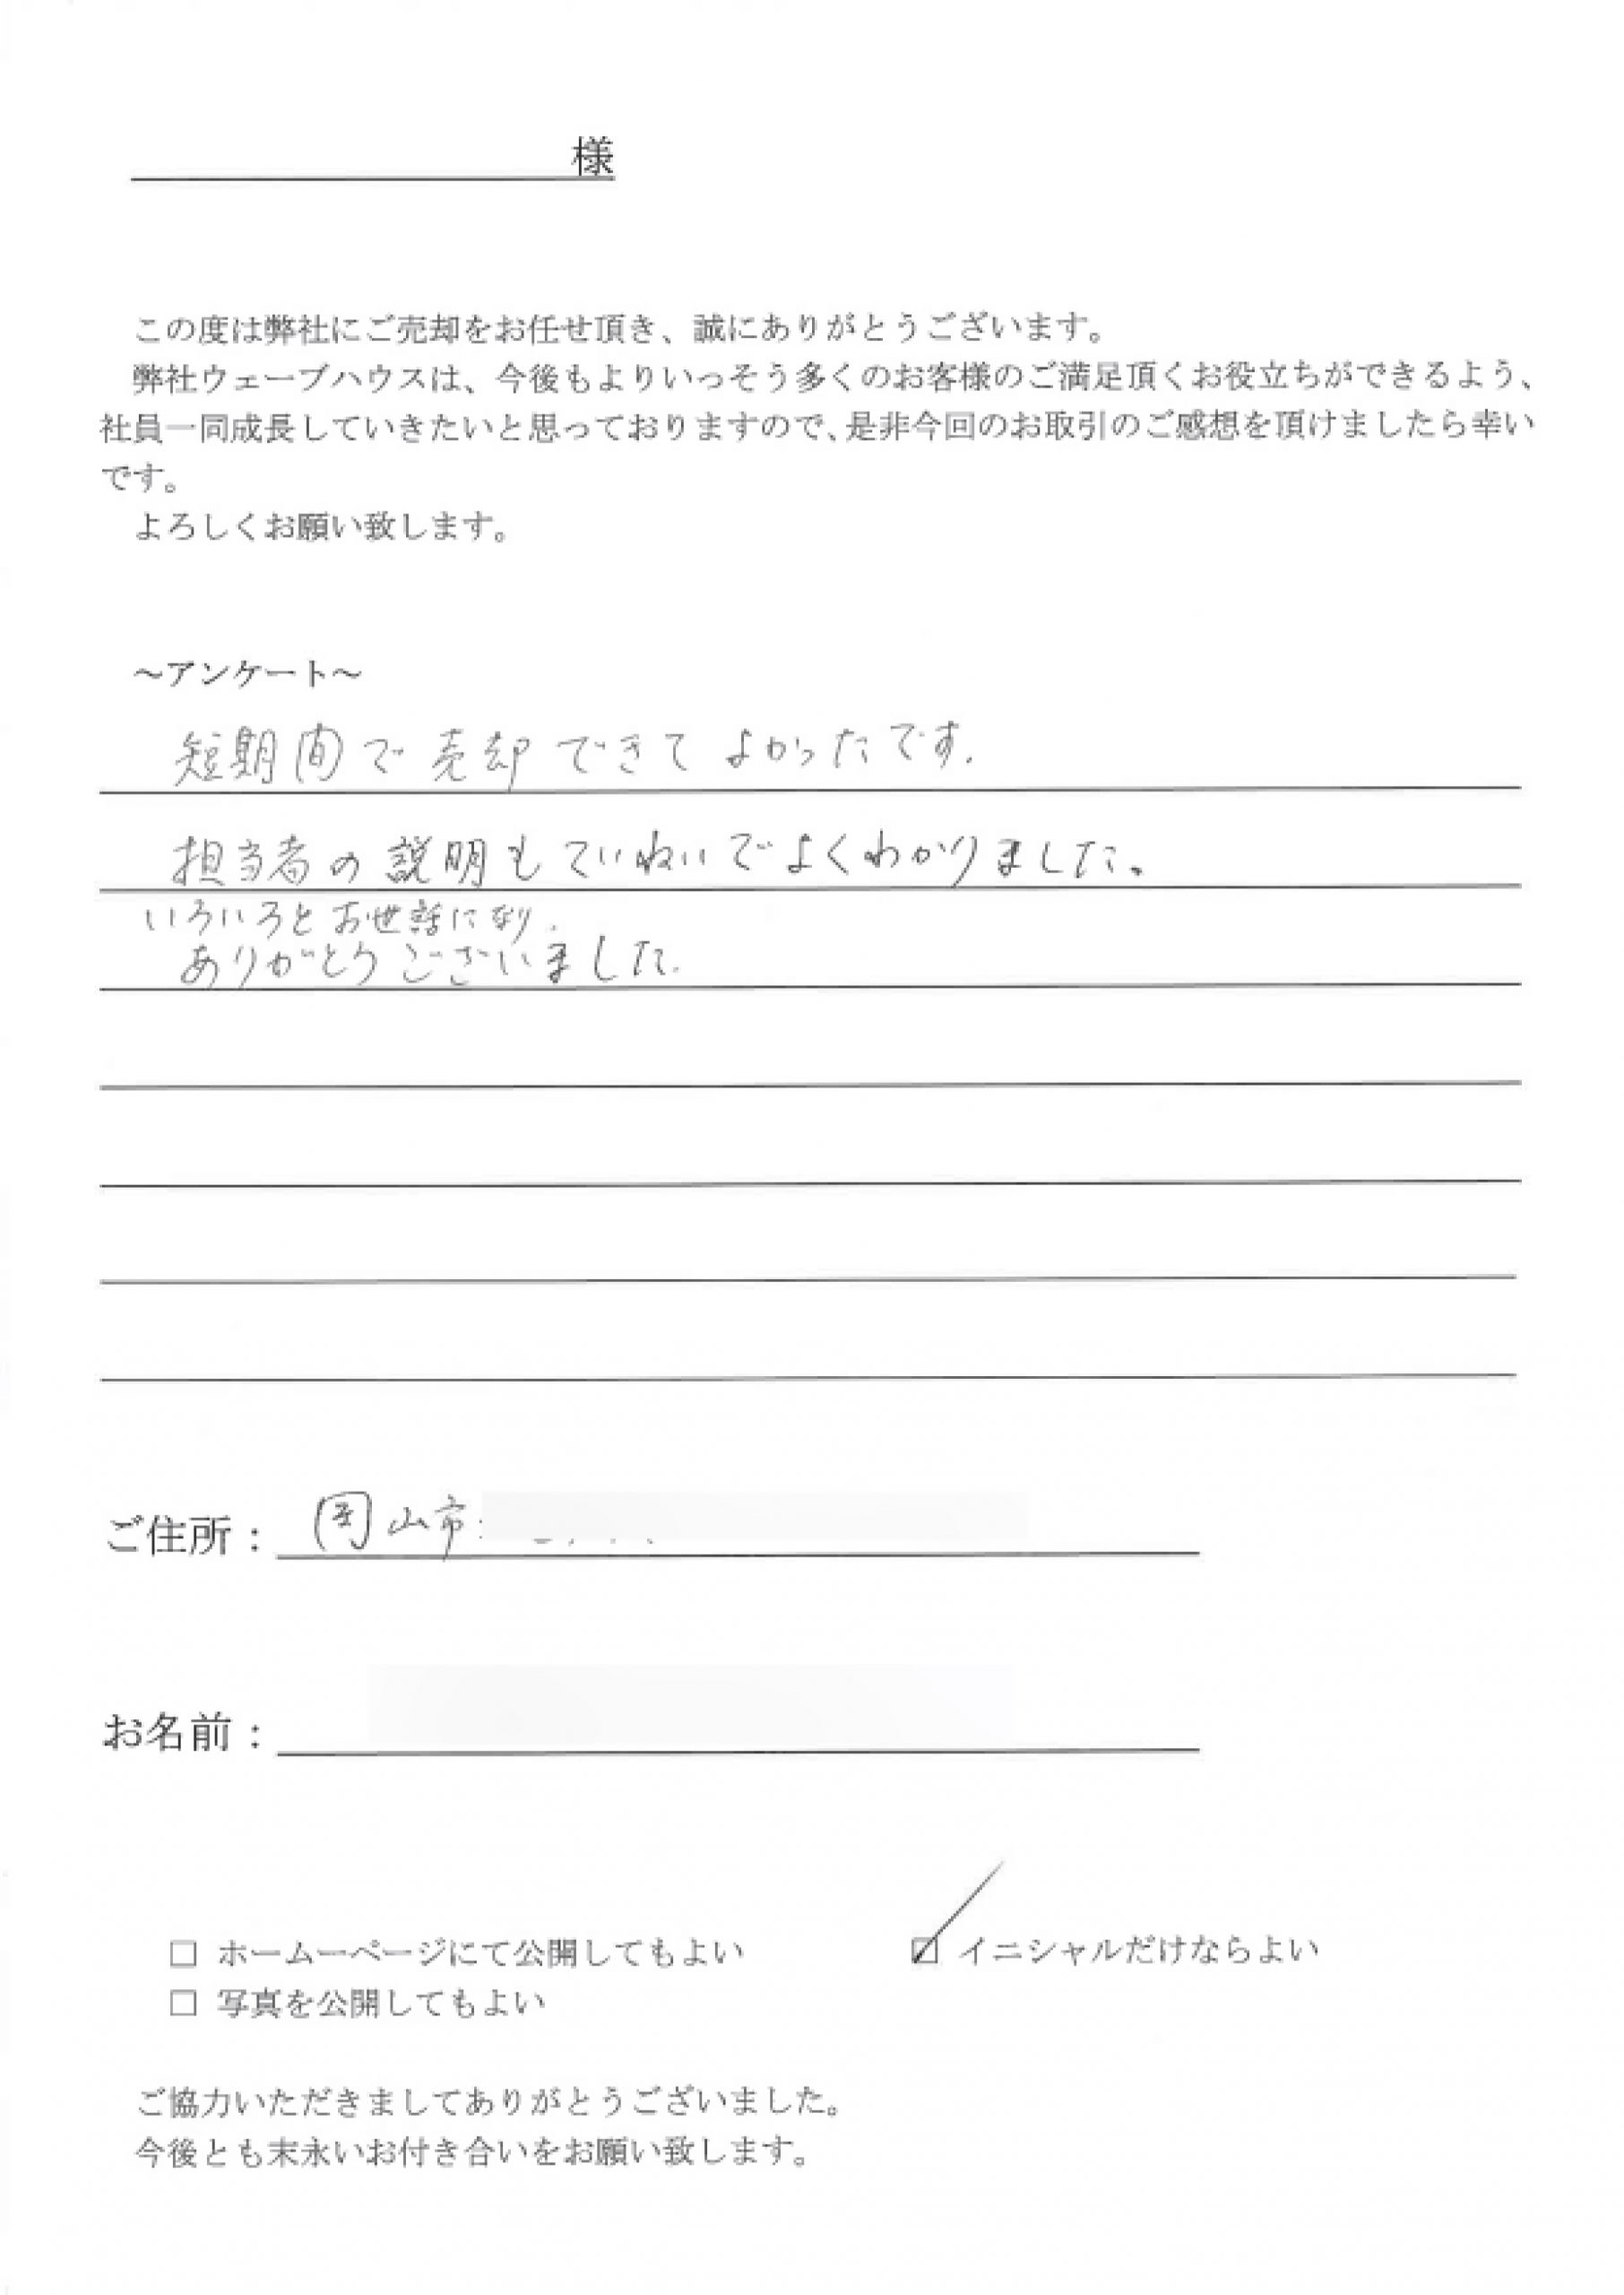 様
この度は弊社にご売却をお任せ頂き、誠にありがとうございます。
弊社ウェーブハウスは、今後もよりいっそう多くのお客様のご満足頂くお役立ちができるよう、
社員一同成長していきたいと思っておりますので、是非今回のお取引のご感想を頂けましたら幸い
です。
よろしくお願い致します。
～アンケート～
短期間で売却できてよかったです.
担当者の説明もていねいでよくわかりました。
いろいろとお世話になり.
ありがとうございました.
ご住所：岡山市
お名前：
□ ホームーページにて公開してもよい ☑ イニシャルだけならよい
□ 写真を公開してもよい
ご協力いただきましてありがとうございました。
今後とも末永いお付き合いをお願い致します。